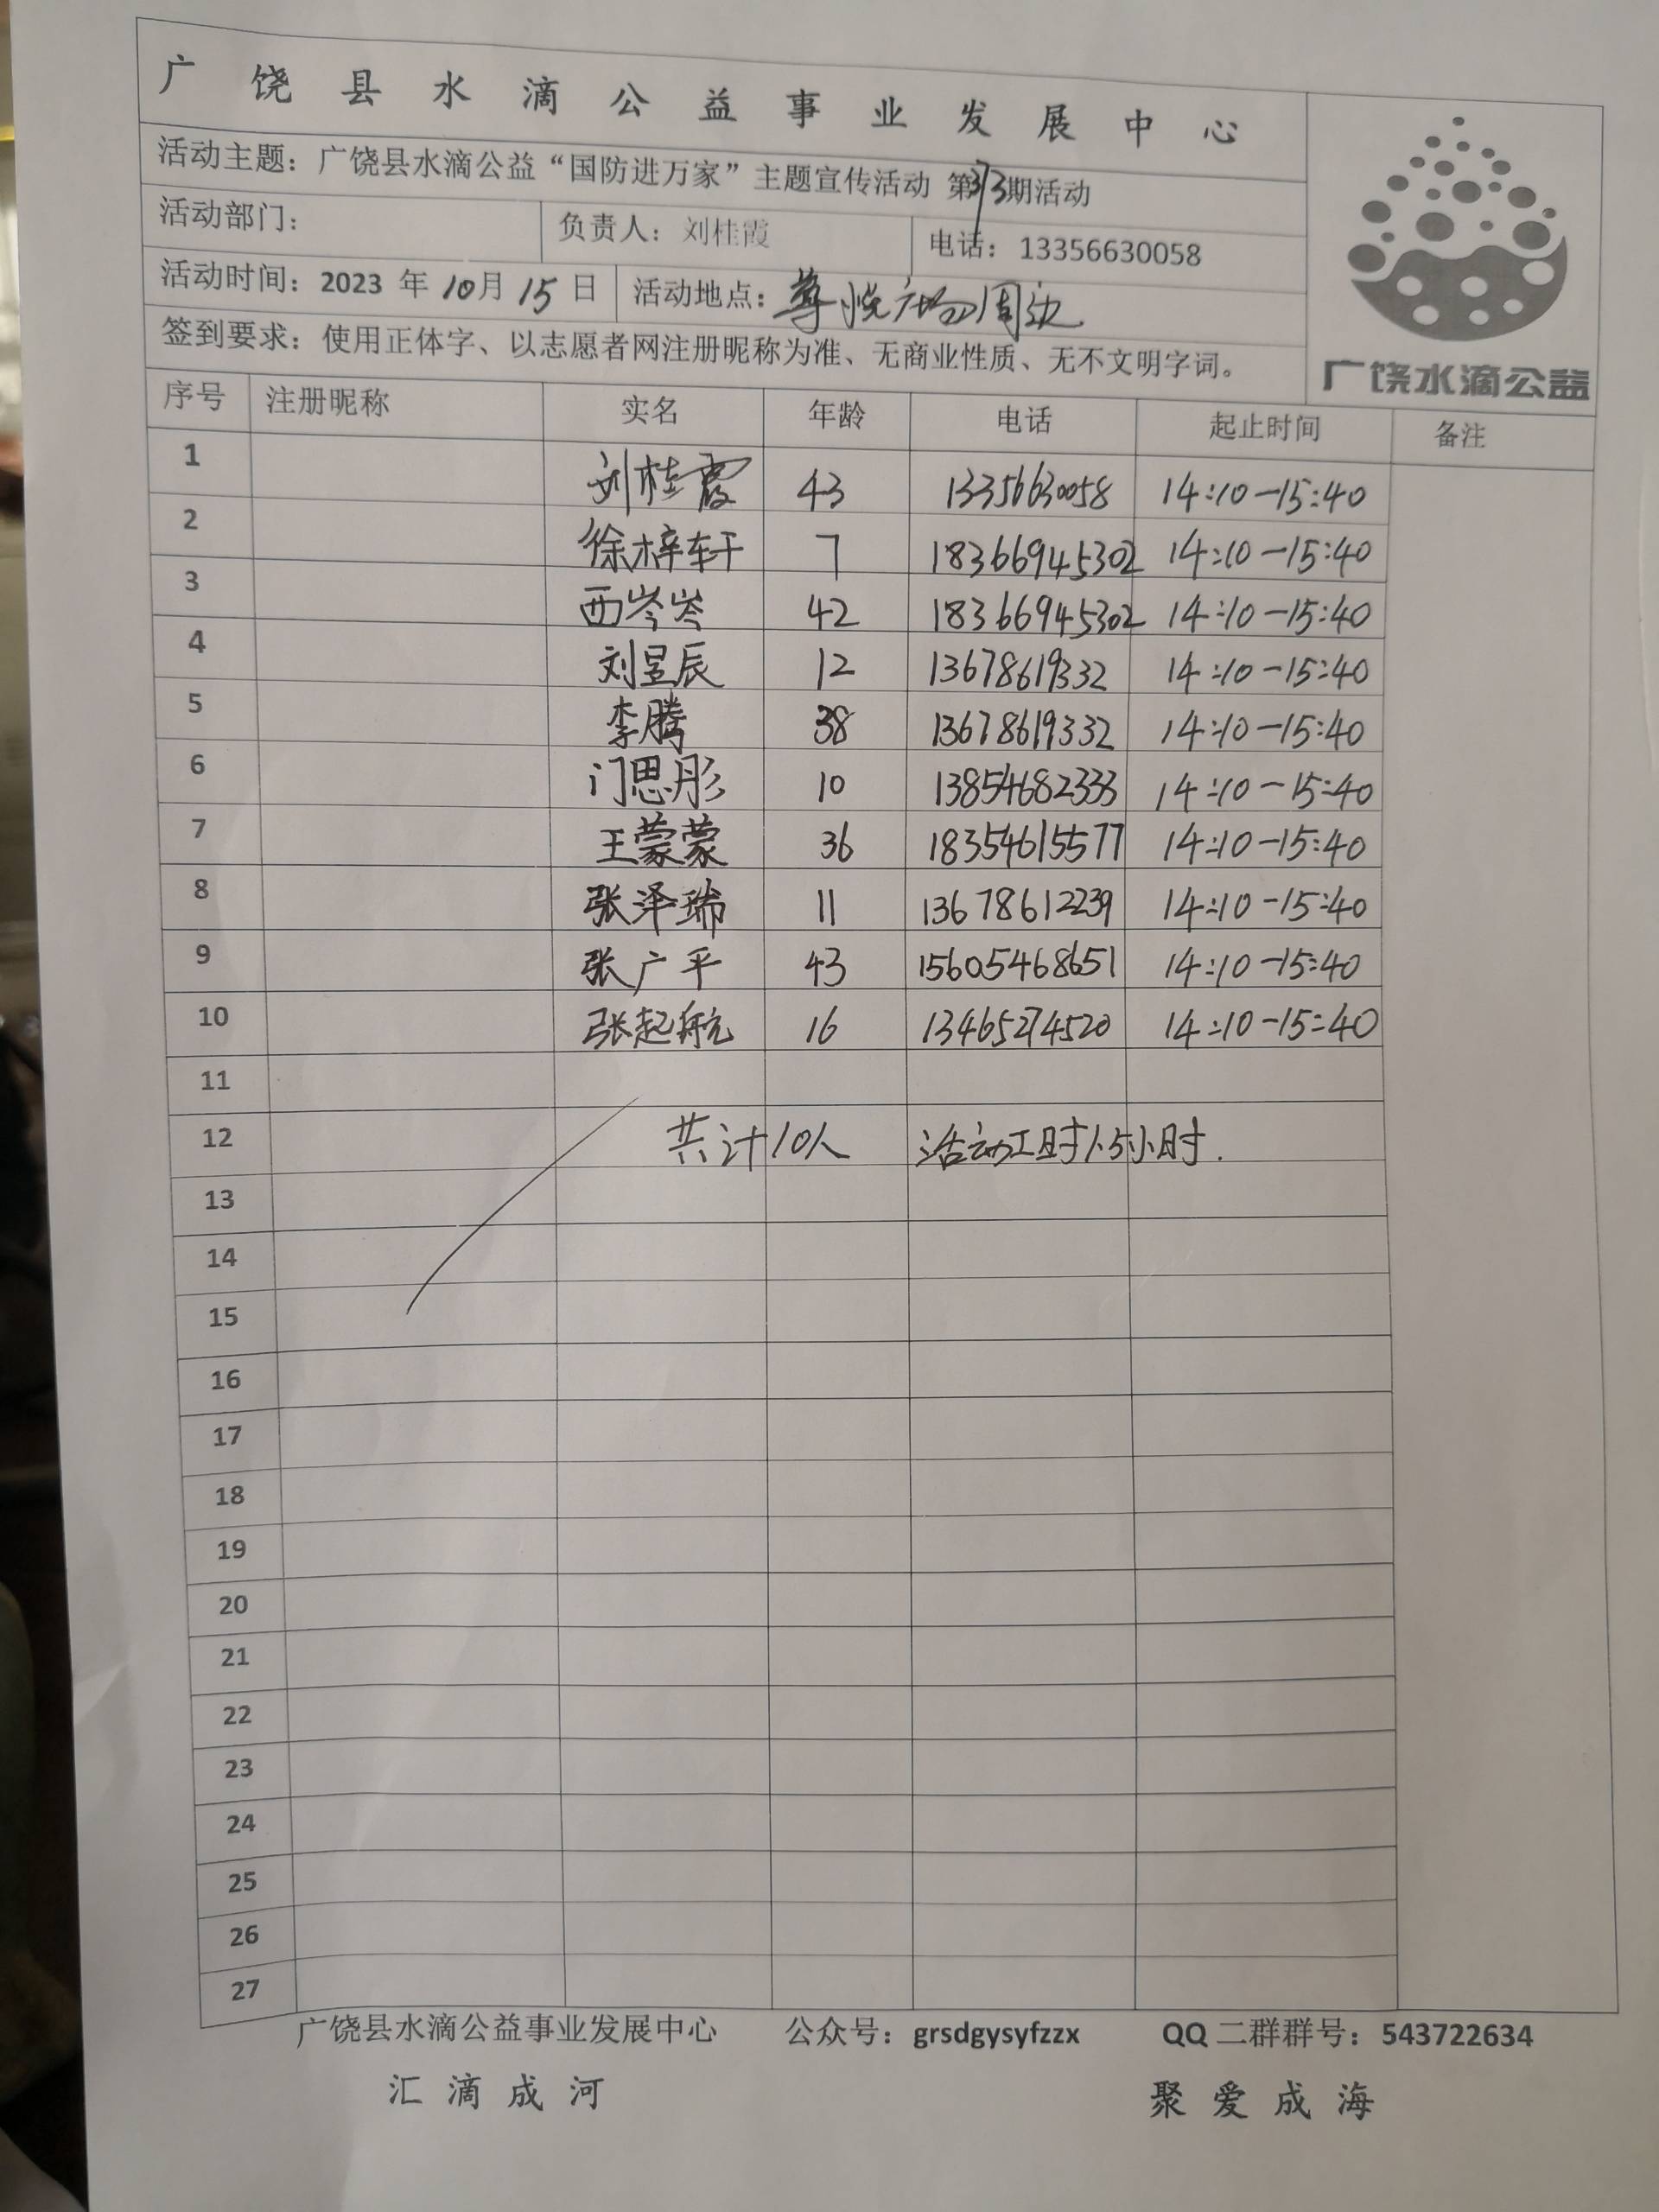 广饶县水滴公益事业发展中心
活动主题：广饶县水滴公益“国防进万家”主题宣传活动 第313期活动
活动部门： 负责人：刘桂霞 电话：13356630058
活动时间：2023 年 10月 15 日 活动地点：尊悦广场周边
签到要求：使用正体字、以志愿者网注册昵称为准、无商业性质、无不文明字词。
广饶水滴公益
序号 注册昵称 实名 年龄 电话 起止时间 备注
1 刘桂霞 43 13356630058 14:10-15:40
2 徐梓轩 7 18366945302 14:10-15:40
3 西岑岑 42 18366945302 14:10-15:40
4 刘昱辰 12 13678619332 14:10-15:40
5 李腾 38 13678619332 14:10-15:40
6 门思彤 10 13854682333 14:10-15:40
7 王蒙蒙 36 18354615577 14:10-15:40
8 张泽瑞 11 13678612239 14:10-15:40
9 张广平 43 15605468651 14:10-15:40
10 张起航 16 13465274520 14:10-15:40
11
12 共计10人 活动工时1.5小时.
13
14
15
16
17
18
19
20
21
22
23
24
25
26
27
广饶县水滴公益事业发展中心 公众号：grsdgysyfzzx QQ 二群群号：543722634
汇滴成河 聚爱成海